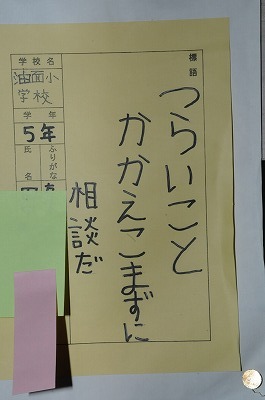 標語
つらいこと
かかえこまずに
相談だ
学校名
油面小
学校
学年
5年
ふりがな
氏名